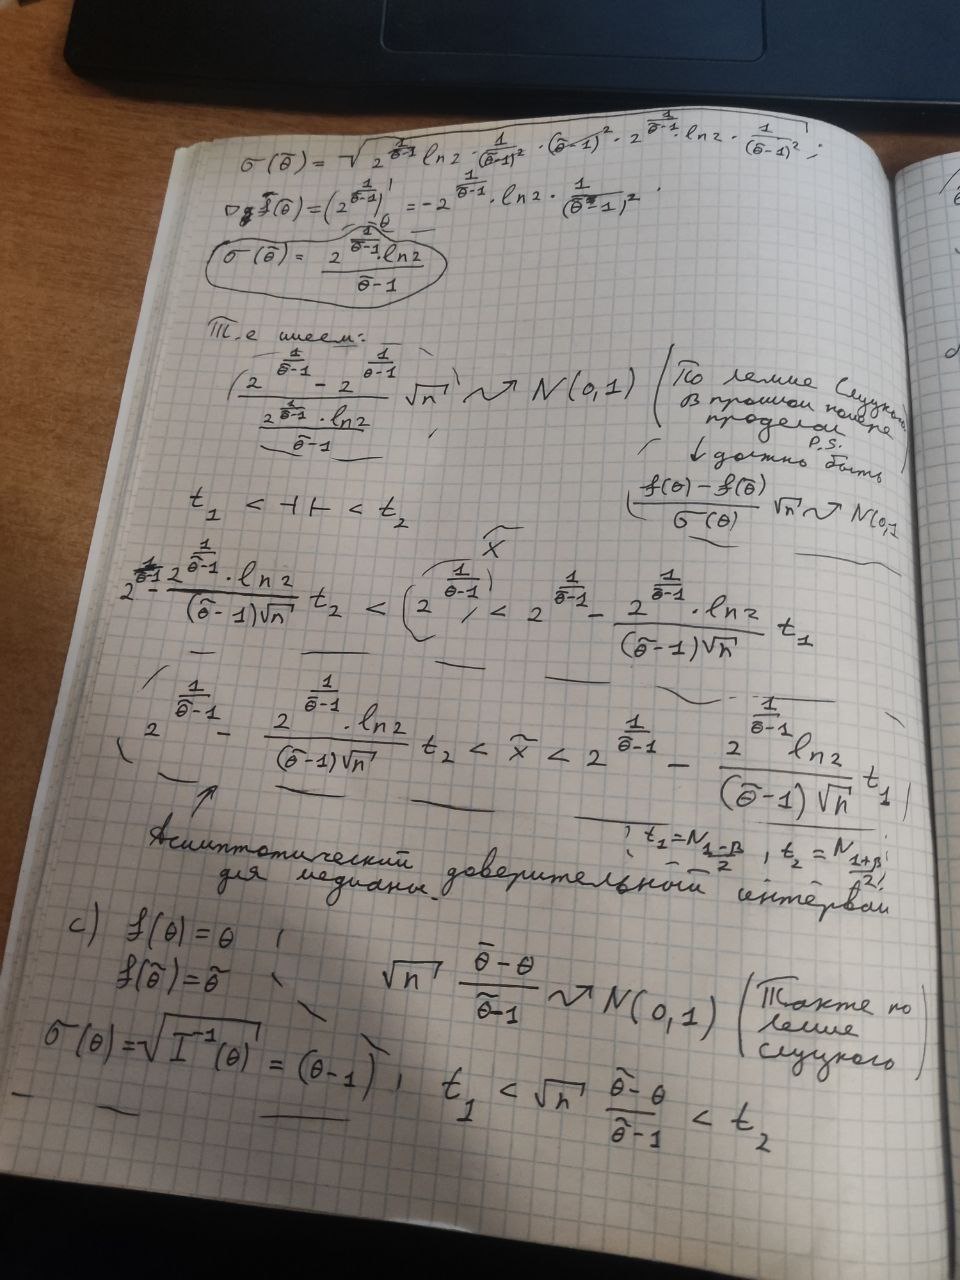 σ(θ̃) = √(2^(1/(θ̃-1)) ln2 · 1/(θ̃-1)² · (θ̃-1)² · 2^(1/(θ̃-1)) · ln2 · 1/(θ̃-1)²) ;
∇f(θ̃) = (2^(1/(θ̃-1)))'_θ = -2^(1/(θ̃-1)) · ln2 · 1/(θ̃-1)²
σ(θ̃) = (2^(1/(θ̃-1)) · ln2)/(θ̃-1)
Т.е имеем:
(2^(1/(θ̃-1)) - 2^(1/(θ-1)))/((2^(1/(θ̃-1)) · ln2)/(θ̃-1)) √n ⇝ N(0,1) (По лемме Слуцкого
в прошлом номере
проделал
P.S.
↓ должно быть
(f(θ) - f(θ̃))/σ(θ) √n ⇝ N(0,1
t₁ < ⊣⊢ < t₂
x̃
2^(1/(θ̃-1)) - (2^(1/(θ̃-1)) · ln2)/((θ̃-1)√n) t₂ < (2^(1/(θ-1))) < 2^(1/(θ̃-1)) - (2^(1/(θ̃-1)) · ln2)/((θ̃-1)√n) t₁
2^(1/(θ̃-1)) - (2^(1/(θ̃-1)) · ln2)/((θ̃-1)√n) t₂ < x̃ < 2^(1/(θ̃-1)) - (2^(1/(θ̃-1)) ln2)/((θ̃-1)√n) t₁
t₁ = N_((1-β)/2) , t₂ = N_((1+β)/2)
Асимптотический доверительный интервал
для медианы.
c) f(θ) = θ
f(θ̃) = θ̃
√n (θ̃ - θ)/(θ̃-1) ⇝ N(0,1) (Также по
лемме
Слуцкого)
σ(θ) = √(I⁻¹(θ)) = (θ-1) , t₁ < √n (θ̃ - θ)/(θ̃-1) < t₂